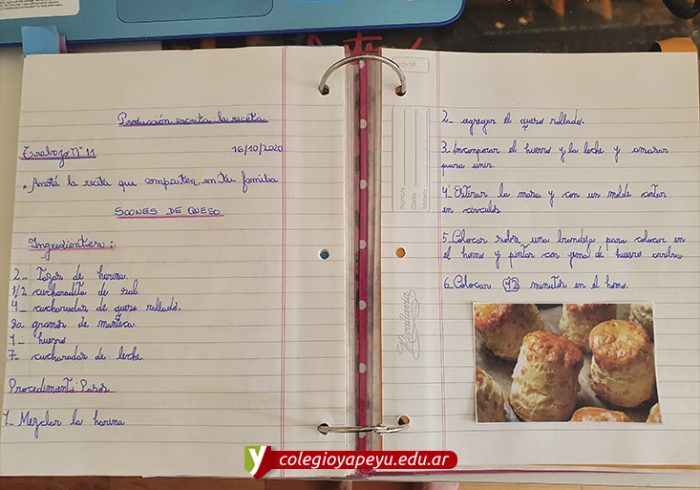 Producción escrita la receta
Trabajo N° 11
16/10/2020
• Anotá la receta que comparten en tu familia
SCONES DE QUESO
Ingredientes:
2_ tazas de harina.
1/2 cucharadita de sal.
4_ cucharadas de queso rallado.
80 gramos de manteca
1_ huevo
7_ cucharadas de leche.
Procedimiento Pasos
1_ Mezclar la harina
2_ agregar el queso rallado.
3. Incorporar el huevo y la leche y amasar
para unir.
4° Estirar la masa y con un molde cortar
en circulos
5. Colocar sobre una bandeja para colocar en
el horno y pintar con yema de huevo arriba
6_ Colocar 12 minutos en el horno.
Nombre
Curso
Materia
Rivadavia
y colegioyapeyu.edu.ar